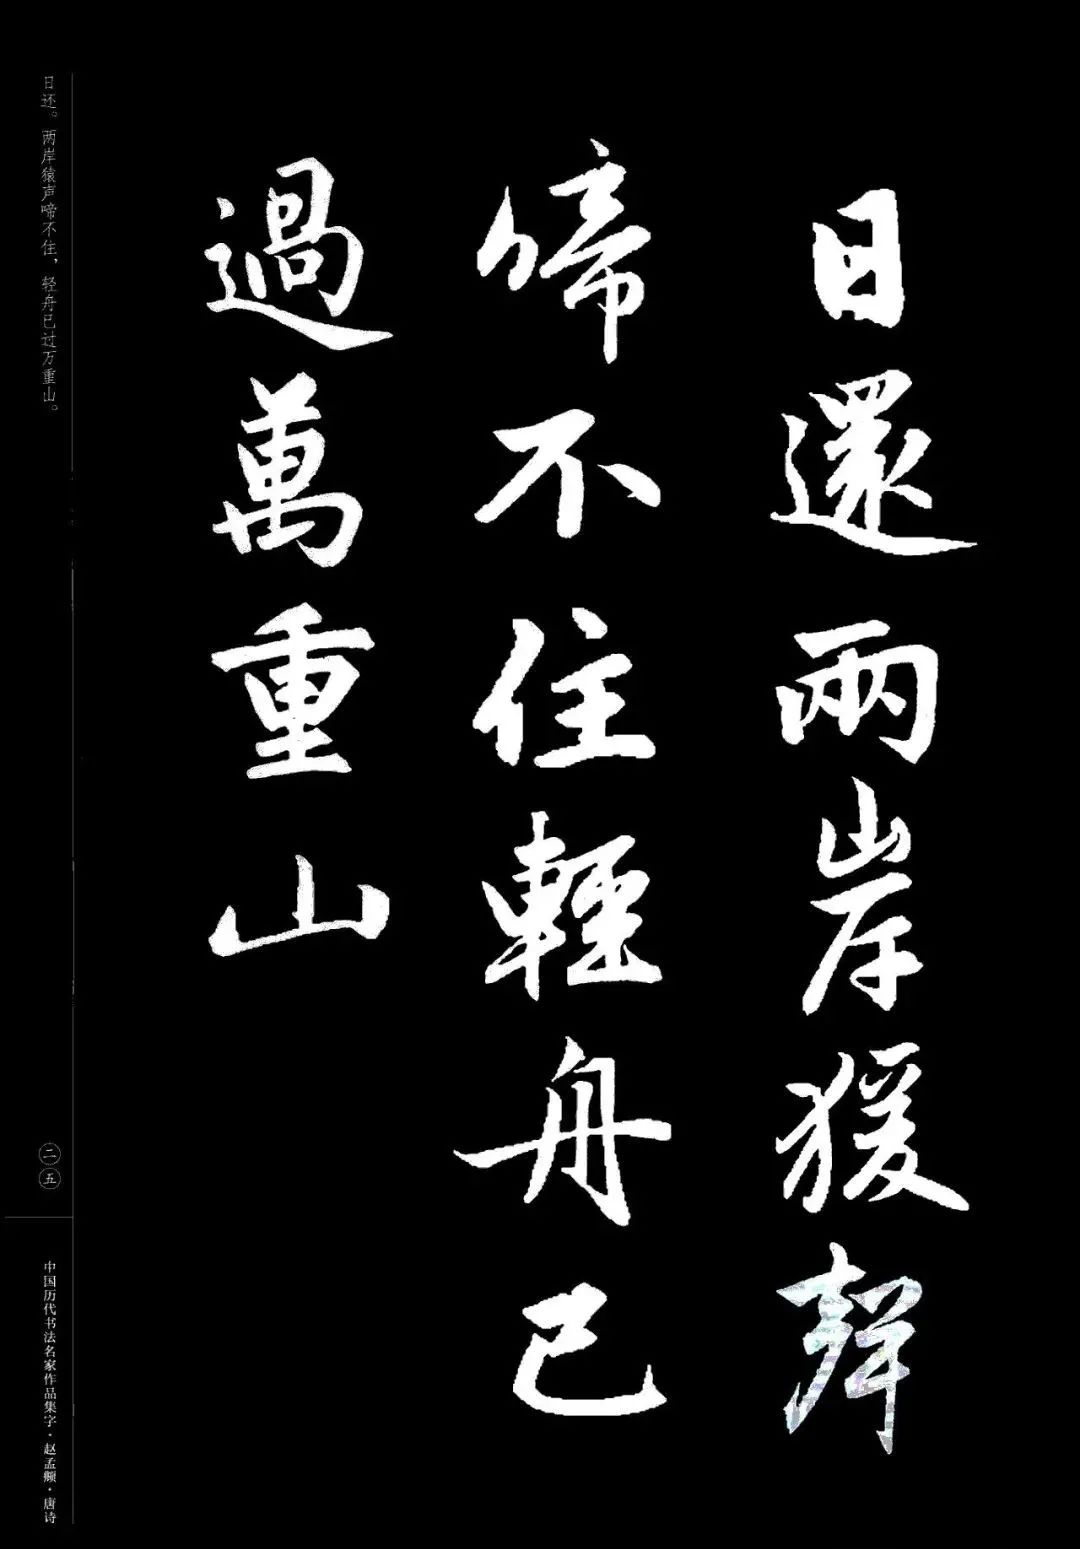 日還兩岸猨聲
啼不住輕舟已
過萬重山
日还。两岸猿声啼不住，轻舟已过万重山。
二五
中国历代书法名家作品集字·赵孟頫·唐诗